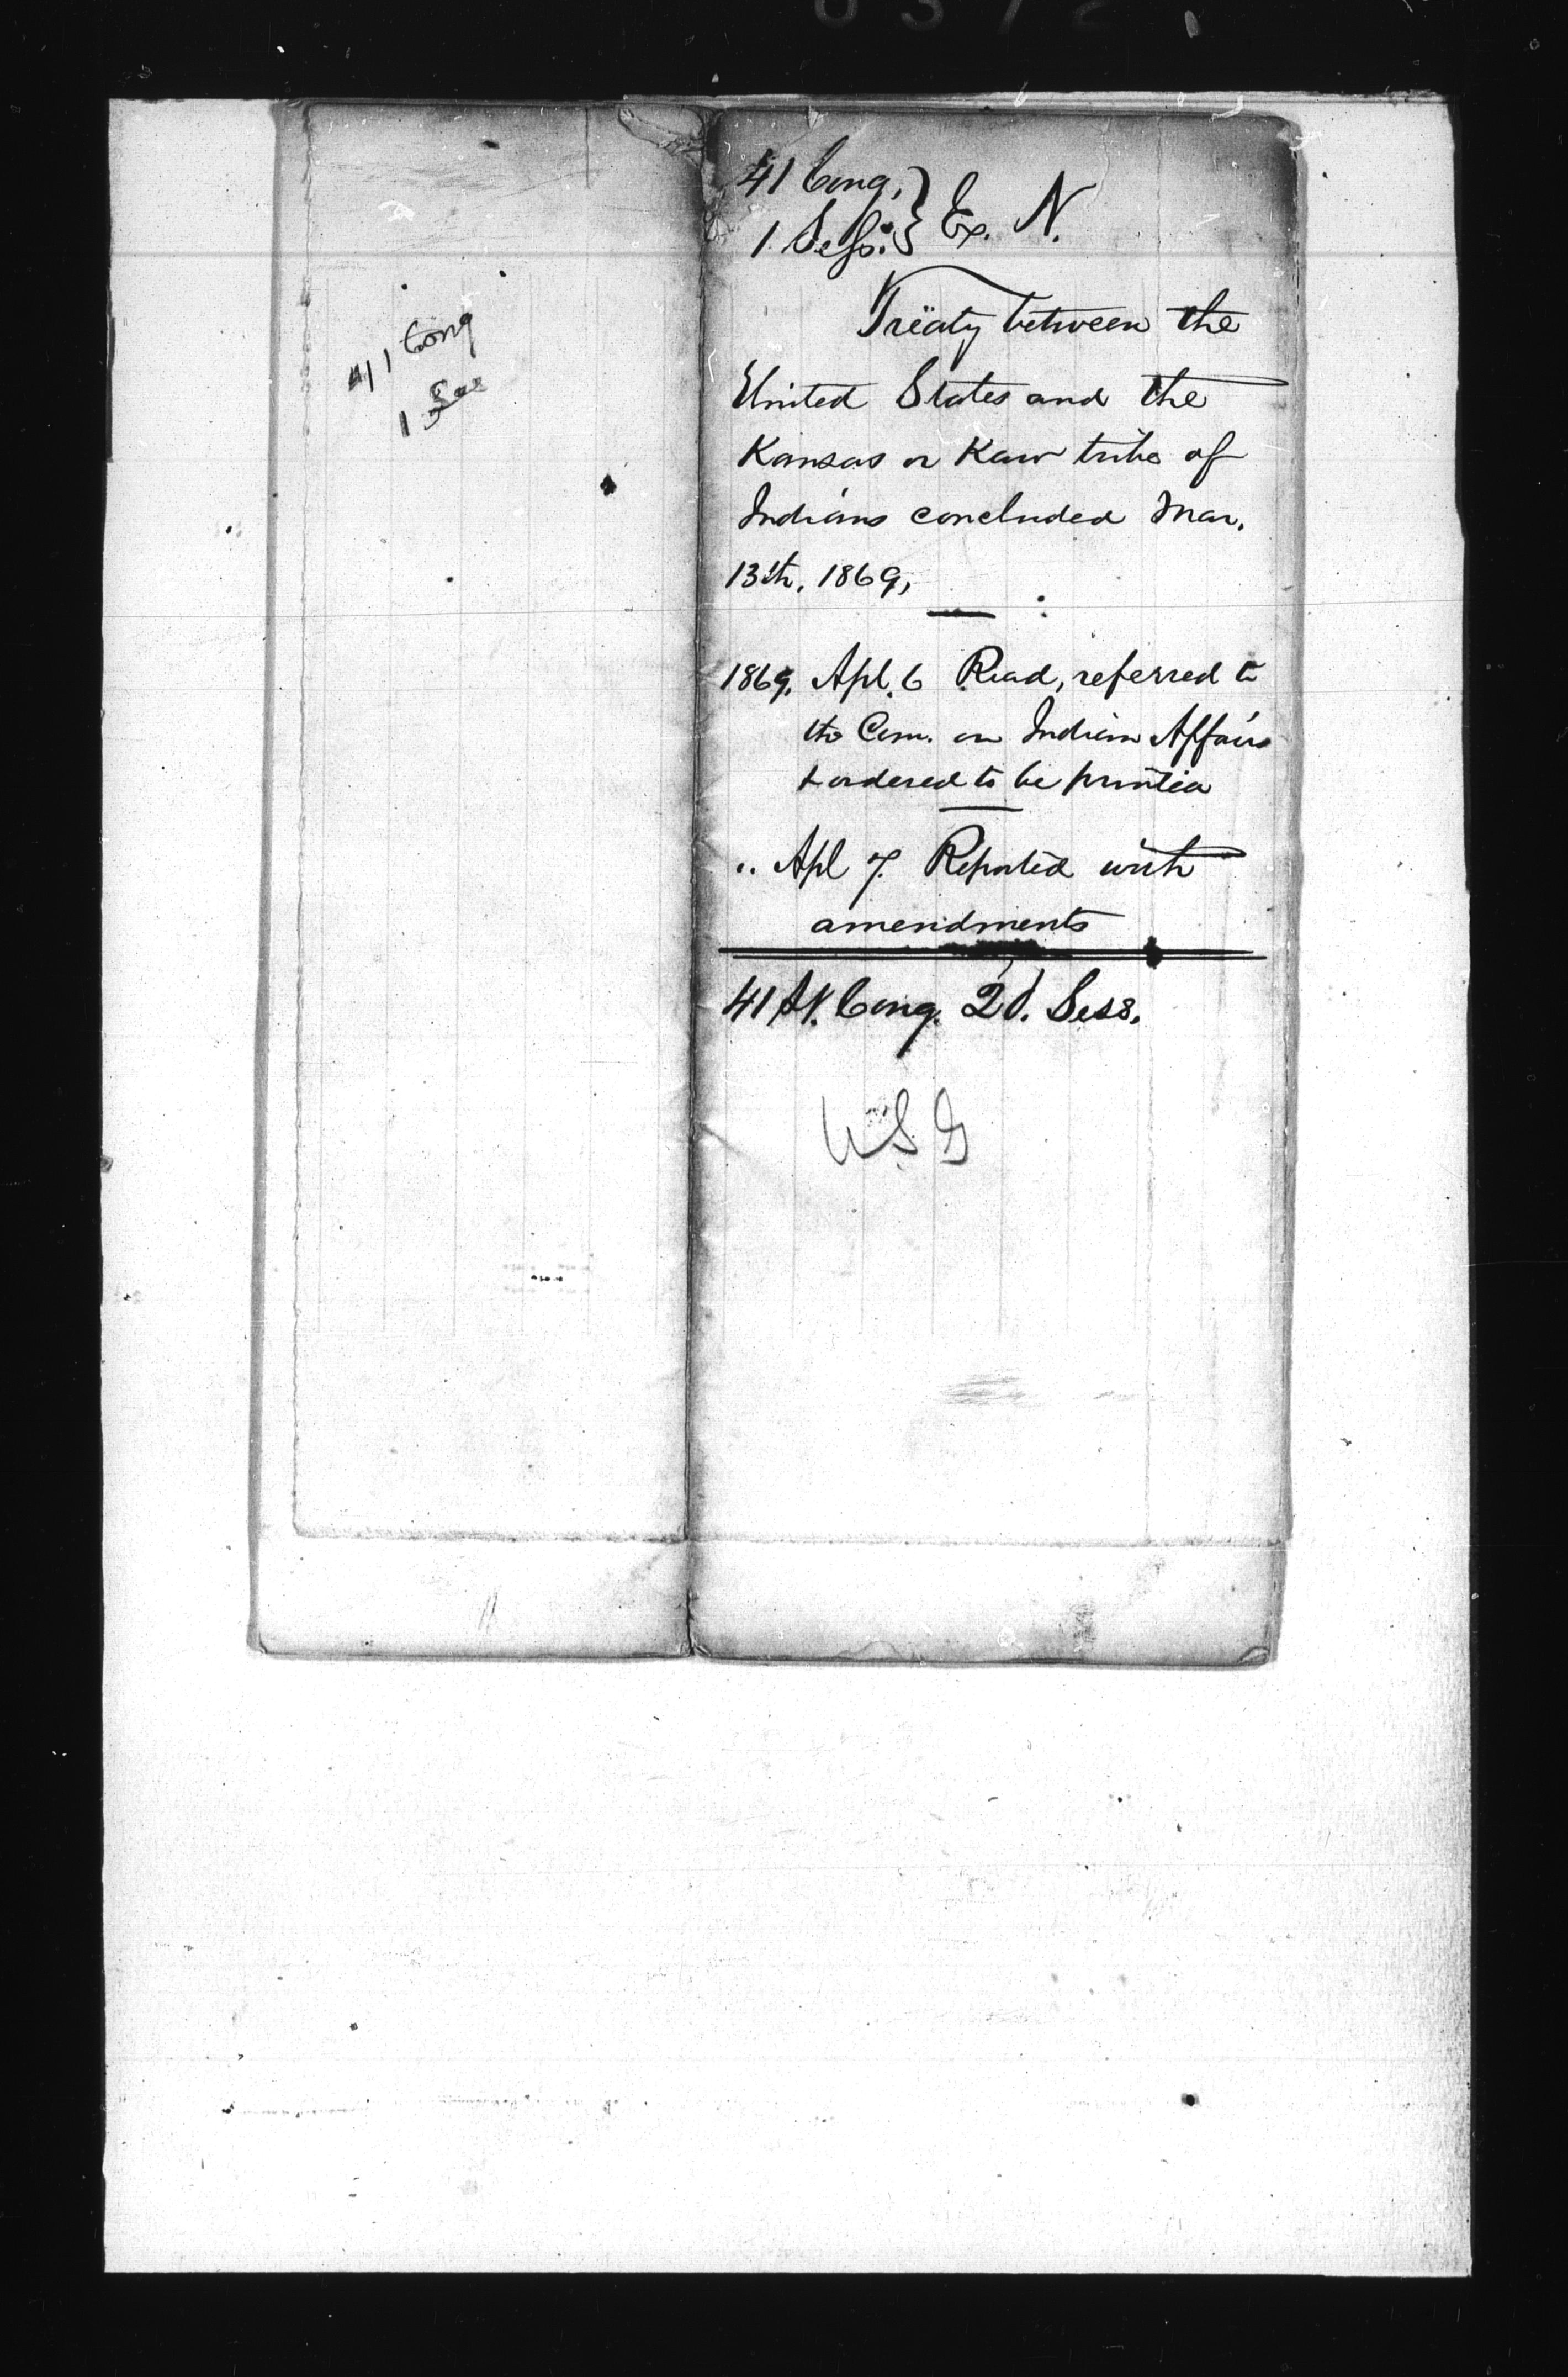 41 Cong
1 Ses
41 Cong, } Ex. N.
1 Sess. }
Treaty between the
United States and the
Kansas or Kaw tribe of
Indians concluded Mar.
13th, 1869,
1869, Apl. 6 Read, referred to
the Com. on Indian Affairs
& ordered to be printed
" Apl 7. Reported with
amendments
41st. Cong. 2d. Sess.